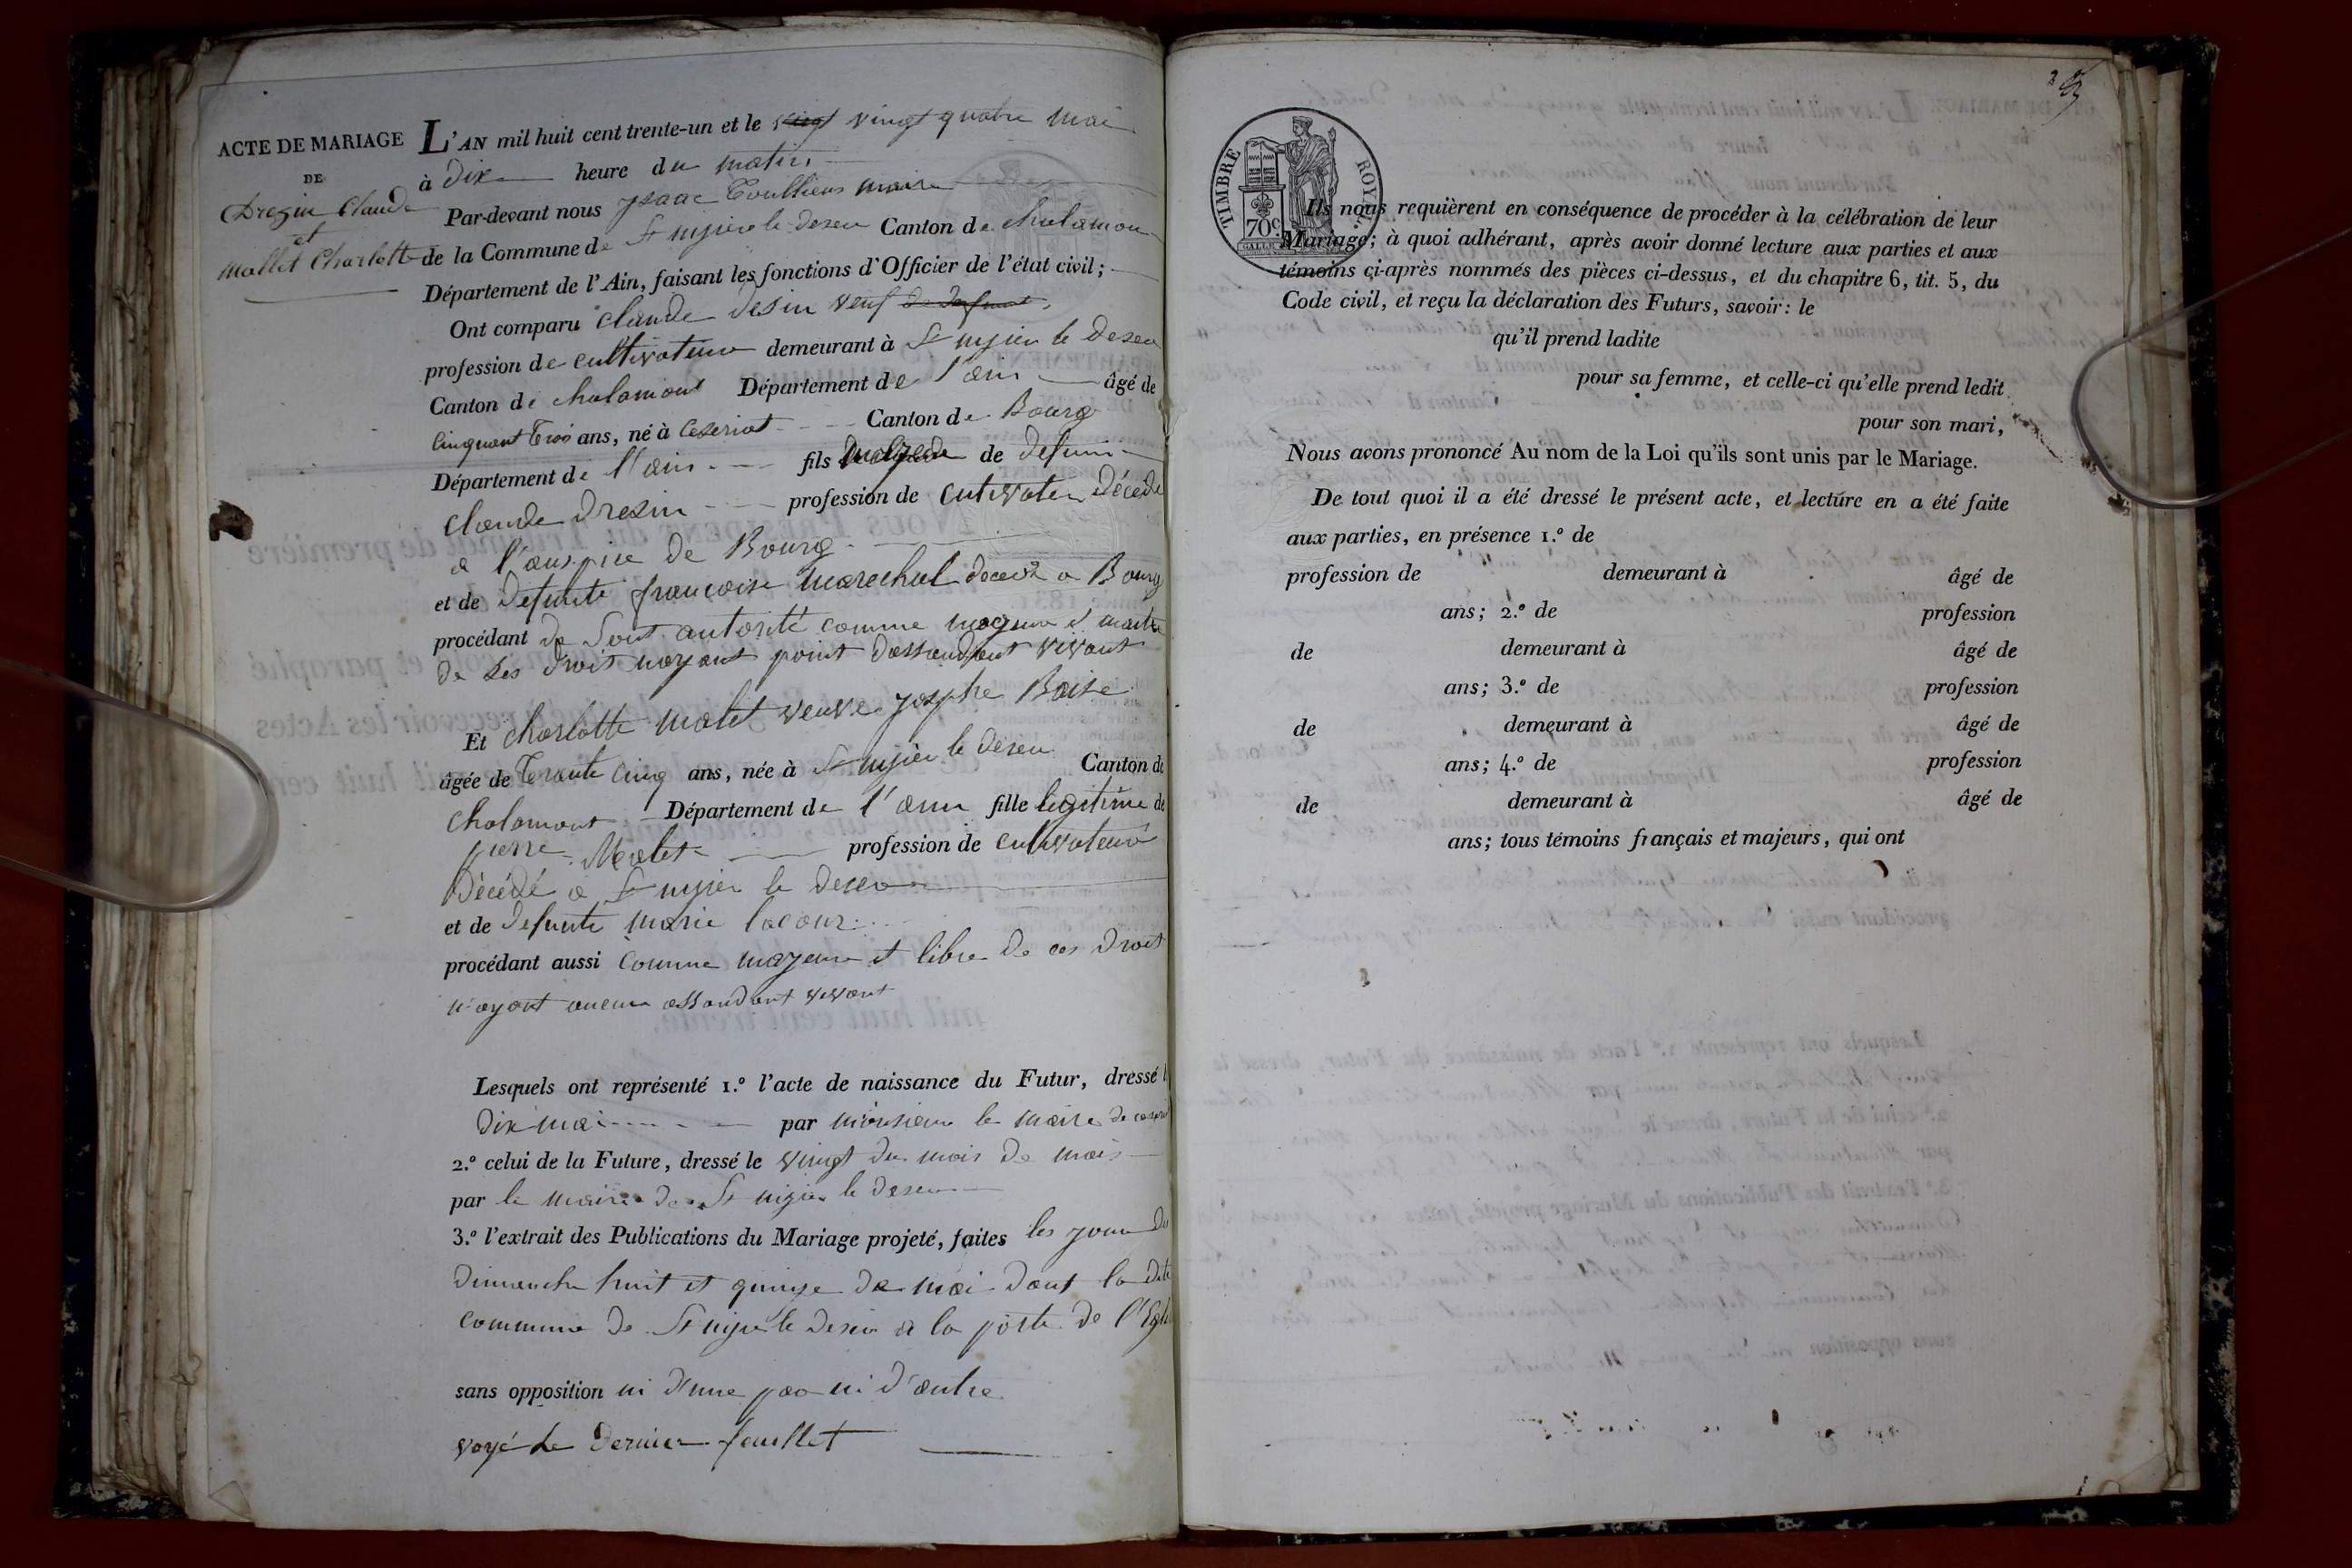 ACTE DE MARIAGE
DE
Dresin Claude
et
Mallet Charlotte
L'AN mil huit cent trente-un et le vingt vingt quatre mai
à dix heure du matin
Par-devant nous ysaac maire
de la Commune de St nizier le deser Canton de chalamon
Département de l'Ain, faisant les fonctions d'Officier de l'état civil;
Ont comparu claude desin veuf de defunt
profession de cultivateur demeurant à St nizier le deser
Canton de chalamont Département de l'ain âgé de
Cinquant Trois ans, né à Ceseriat Canton de Bourg
Département de l'ain fils de defun
claude dresin profession de cutivater décédé
a l'auspice de Bourg
et de defunte francoise marechal decede a Bourg
procédant de Sont autorité comme mageur et maitre
de ses droit nayant point dassandant vivant
Et charlotte malet veuve josephe Boise
âgée de Trante Cinq ans, née à St nizier le deser Canton de
chalamont Département de l'ain fille legitime de
pierre Malet profession de cultivateur
Décédé a St nizier le deser
et de defunte marie lacour
procédant aussi comme mayeur et libre de ces droit
n'ayant aucun assandant vivant
Lesquels ont représenté 1.º l'acte de naissance du Futur, dressé l
dix mai par monsieur le maire de
2.º celui de la Future, dressé le vingt du mois de mais
par le maire de St nizier le deser
3.º l'extrait des Publications du Mariage projeté, faites les jour du
dimanche huit et quinze de mai dant la dite
commune de St nizier le deser a la porte de l'Egli
sans opposition ni d'une par ni d'autre
voyé le dernier feuillet
TIMBRE ROYAL
70c.
Ils nous requièrent en conséquence de procéder à la célébration de leur
Mariage; à quoi adhérant, après avoir donné lecture aux parties et aux
témoins ci-après nommés des pièces ci-dessus, et du chapitre 6, tit. 5, du
Code civil, et reçu la déclaration des Futurs, savoir: le
qu'il prend ladite
pour sa femme, et celle-ci qu'elle prend ledit
pour son mari,
Nous avons prononcé Au nom de la Loi qu'ils sont unis par le Mariage.
De tout quoi il a été dressé le présent acte, et lecture en a été faite
aux parties, en présence 1.º de
profession de demeurant à âgé de
ans; 2.º de profession
de demeurant à âgé de
ans; 3.º de profession
de demeurant à âgé de
ans; 4.º de profession
de demeurant à âgé de
ans; tous témoins français et majeurs, qui ont